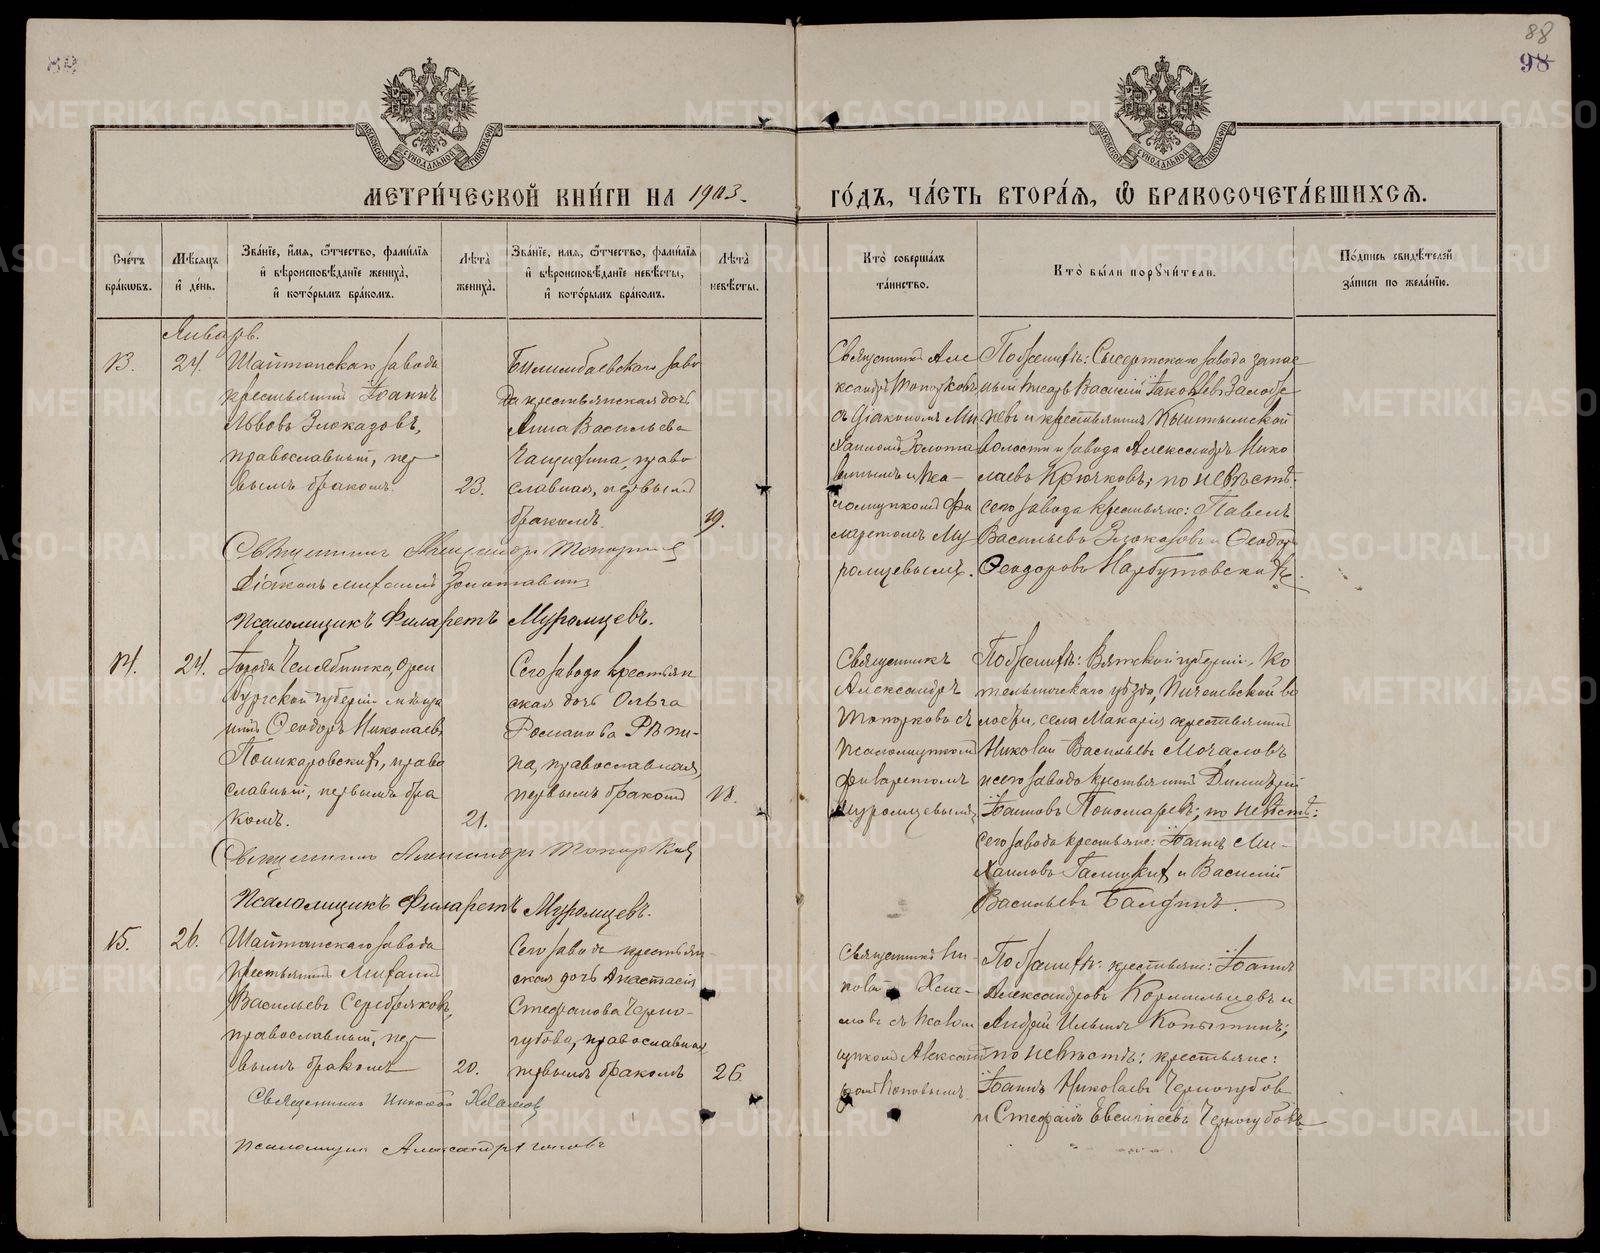 88
98
МЕТРИ́ЧЕСКОЙ КНИ́ГИ НА 1903.
ГО́ДЪ, ЧА́СТЬ ВТОРА́Я, Ѽ БРАКОСОЧЕТА́ВШИХСЯ.
Сче́тъ бра́кѡвъ.
Мѣ́сяцъ и҆ де́нь.
Зва́нїе, и҆́мя, ѻ҆́тчество, фами́лїя и҆ вѣроисповѣ́данїе жениха̀, и҆ кото́рымъ бра́комъ.
Лѣ́та̀ жениха̀.
Зва́нїе, и҆́мя, ѻ҆́тчество, фами́лїя и҆ вѣроисповѣ́данїе невѣ́сты, и҆ кото́рымъ бра́комъ.
Лѣ́та̀ невѣ́сты.
Кто̀ соверша́лъ та́инство.
Кто̀ бы́ли порꙋчи́тели.
По́дпись свидѣ́телей за́писи по жела́нїю.
Январь.
13.
24.
Шайтанскаго завода
крестьянинъ Іоаннъ
Львовъ Злоказовъ,
православный, пер
вымъ бракомъ.
23.
Билимбаевскаго заво
да крестьянская дочь
Анна Васильева
право
славная, первымъ
бракомъ.
19.
Священникъ Але
ксандръ Топорковъ
съ діакономъ Ми
хаиломъ Золота
винымъ и Пса-
ломщикомъ Фи
ларетомъ Му
ромцевымъ.
По женихѣ: Сысертскаго завода запас
ный писарь Василій Іаковлевъ
и крестьянинъ Кыштымской
волости и завода Александръ Нико
лаевъ Крючковъ; по невѣстѣ:
сего завода крестьяне: Павелъ
Васильевъ Злоказовъ и Ѳеодоръ
Ѳеодоровъ Нарбутовскихъ.
Священникъ Александръ Топорковъ
Діаконъ Михаилъ Золотавинъ
Псаломщикъ Филаретъ Муромцевъ.
14.
24.
Города Челябинска, Орен
бургской губерніи мѣща
нинъ Ѳеодоръ Николаевъ
право
славный, первымъ бра
комъ.
21.
Сего завода крестьян
ская дочь Ольга
Романова Рѣпи-
на, православная,
первымъ бракомъ
18.
Священникъ
Александръ
Топорковъ съ
Псаломщикомъ
Филаретомъ
Муромцевымъ
По женихѣ: Вятской губерніи, Ко
тельничскаго уѣзда, во
лости, села Макарія крестьянинъ
Николай Васильевъ Мочаловъ
и сего завода крестьянинъ Димитрій
Іоанновъ Пономаревъ; по невѣстѣ:
сего завода крестьяне: Іоаннъ Ми-
хаиловъ и Василій
Васильевъ
Священникъ Александръ Топорковъ
Псаломщикъ Филаретъ Муромцевъ.
15.
26.
Шайтанскаго завода
крестьянинъ Михаилъ
Васильевъ Серебряковъ,
православный, пер
вымъ бракомъ
20.
Сего завода крестьян-
ская дочь Анастасія
Стефанова Черно-
губова, православная
первымъ бракомъ
26
Священникъ Ни-
колай
съ Псалом
щикомъ Алексан
дромъ Поповымъ
По женихѣ: крестьяне: Іоаннъ
Александровъ Кормильцевъ и
Андрей Ильинъ Копытинъ;
по невѣстѣ: крестьяне:
Іоаннъ Николаевъ Черногубовъ
и Стефанъ Евсигнеевъ Черногубовъ
Священникъ Николай
Псаломщикъ Александръ Поповъ
METRIKI.GASO-URAL.RU